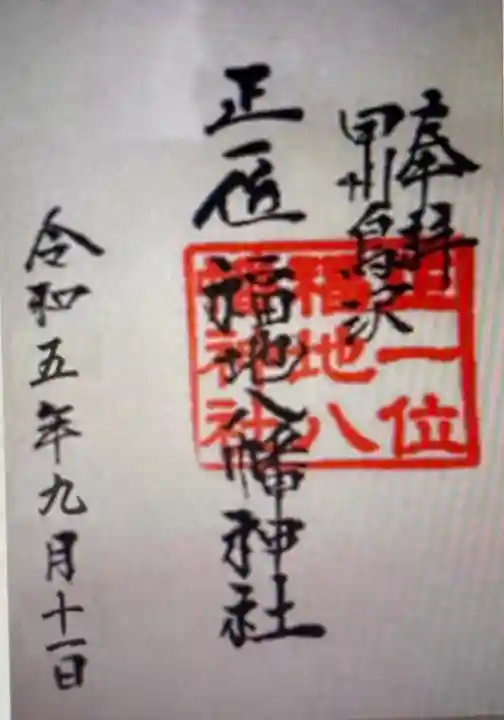 奉拝
甲州鳥沢
正一位 福地八幡神社
正一位
福地八
幡神社
令和五年九月十一日